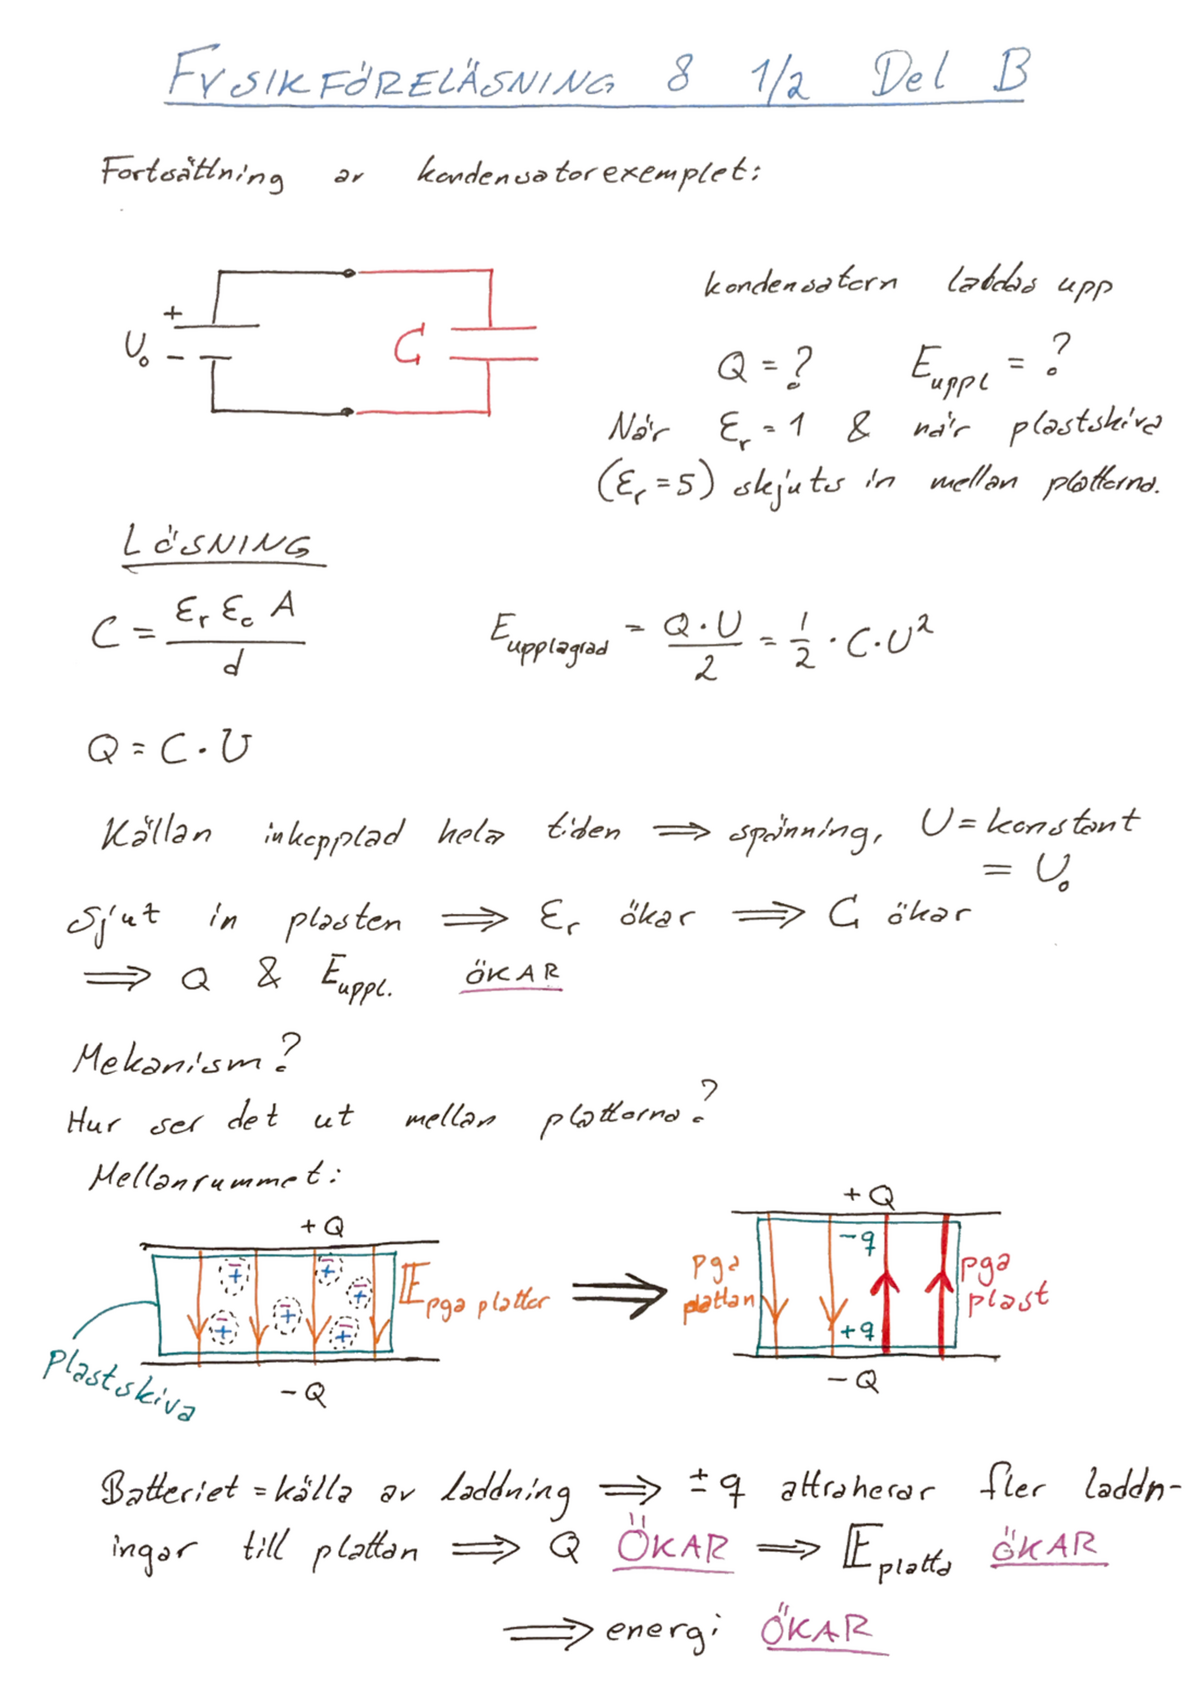 FYSIKFÖRELÄSNING 8 1/2 Del B
Fortsättning av kondensatorexemplet:
kondensatorn laddas upp
+
U₀
-
C
Q = ? E_uppl = ?
När ε_r = 1 & när plastskiva
(ε_r = 5) skjuts in mellan plattorna.
LÖSNING
C = ε_r ε₀ A / d
E_upplagrad = Q·U / 2 = 1/2 · C·U²
Q = C·U
Källan inkopplad hela tiden ⇒ spänning, U = konstant
= U₀
Sjut in plasten ⇒ ε_r ökar ⇒ C ökar
⇒ Q & E_uppl. ÖKAR
Mekanism?
Hur ser det ut mellan plattorna?
Mellanrummet:
+Q
𝔼 pga plattor
-Q
Plastskiva
⇒
+Q
pga plattan
-q
+q
pga plast
-Q
Batteriet = källa av laddning ⇒ ±q attraherar fler laddn-
ingar till plattan ⇒ Q ÖKAR ⇒ 𝔼_platta ÖKAR
⇒ energi ÖKAR